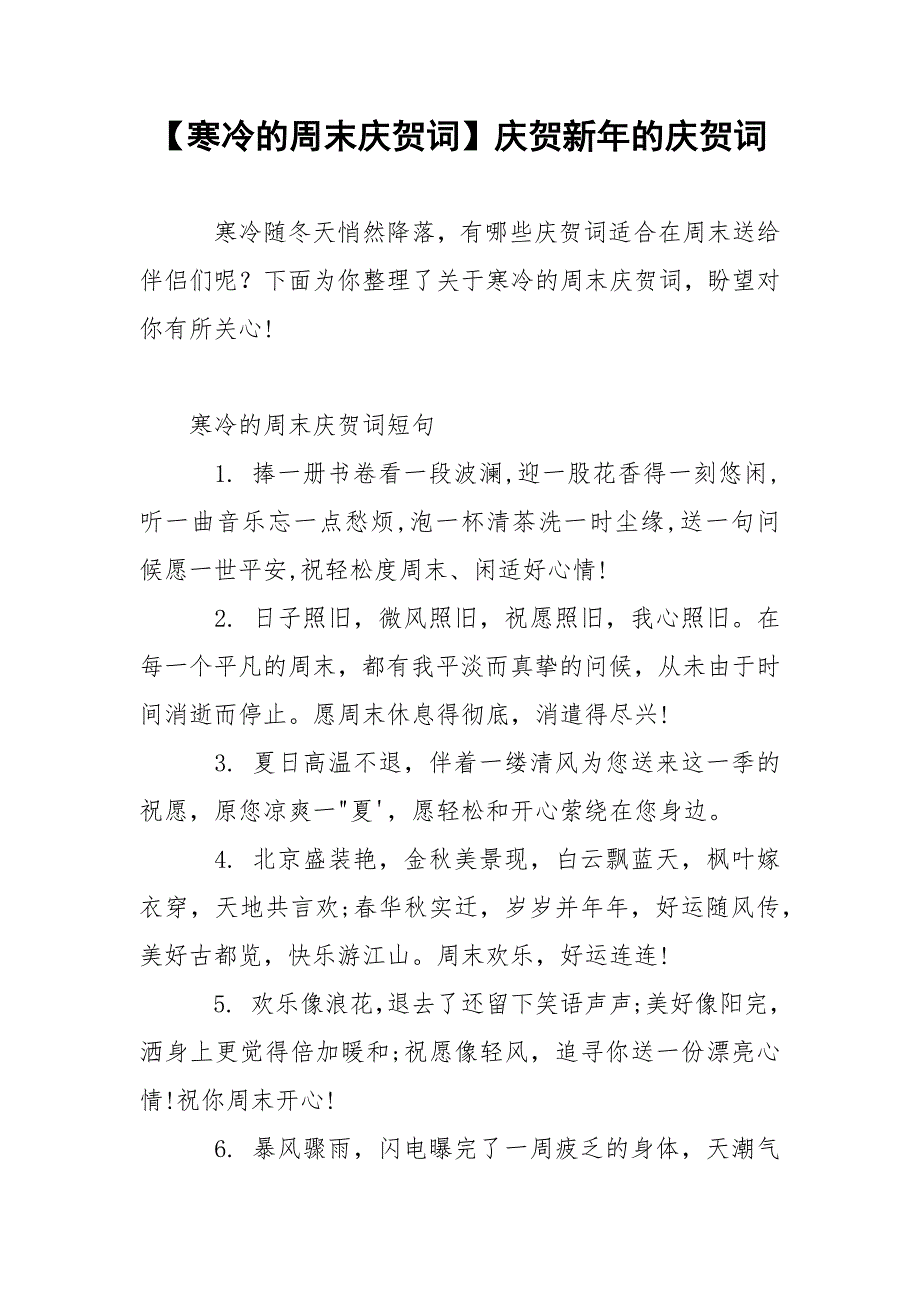 【寒冷的周末庆贺词】庆贺新年的庆贺词
寒冷随冬天悄然降落，有哪些庆贺词适合在周末送给
伴侣们呢？下面为你整理了关于寒冷的周末庆贺词，盼望对
你有所关心!
寒冷的周末庆贺词短句
1. 捧一册书卷看一段波澜,迎一股花香得一刻悠闲,
听一曲音乐忘一点愁烦,泡一杯清茶洗一时尘缘,送一句问
候愿一世平安,祝轻松度周末、闲适好心情!
2. 日子照旧，微风照旧，祝愿照旧，我心照旧。在
每一个平凡的周末，都有我平淡而真挚的问候，从未由于时
间消逝而停止。愿周末休息得彻底，消遣得尽兴!
3. 夏日高温不退，伴着一缕清风为您送来这一季的
祝愿，原您凉爽一"夏'，愿轻松和开心萦绕在您身边。
4. 北京盛装艳，金秋美景现，白云飘蓝天，枫叶嫁
衣穿，天地共言欢;春华秋实迁，岁岁并年年，好运随风传，
美好古都览，快乐游江山。周末欢乐，好运连连!
5. 欢乐像浪花,退去了还留下笑语声声;美好像阳完，
洒身上更觉得倍加暖和;祝愿像轻风，追寻你送一份漂亮心
情!祝你周末开心!
6. 暴风骤雨，闪电曝完了一周疲乏的身体，天潮气